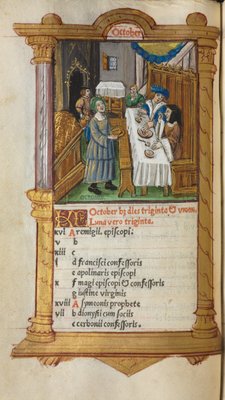 October
OCTOBER
KL October hʒ dies triginta & vnum.
Luna vero triginta.
xvi A remigii. episcopi.
v b
xiii c
ii d francisci confessoris
e apolinaris episcopi
x f magi episcopi & confessoris
g iustine virginis
xviii A symeonis prophete
vii b dionysii cum sociis
c cerbonii confessoris.